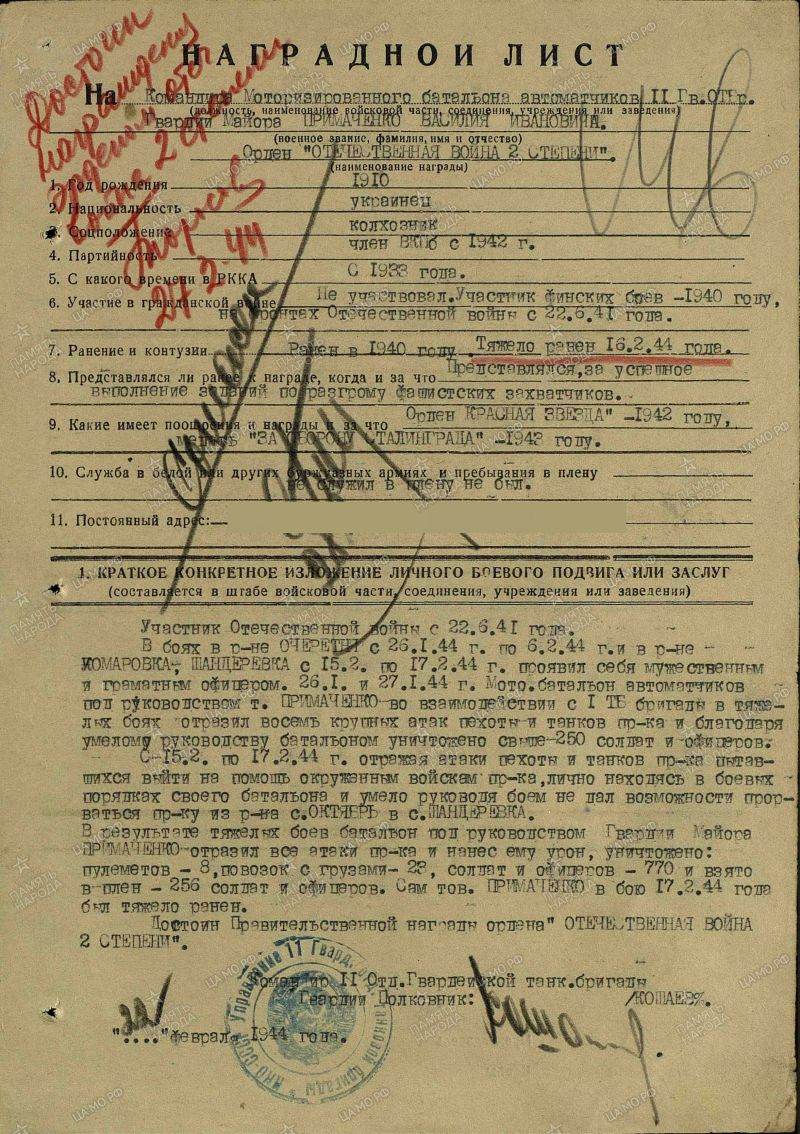 Достоин
награждения
орденом отеч
война 2 степени
27-2-44
НАГРАДНОЙ ЛИСТ
На Командира Моторизированного батальона автоматчиков II Гв.ОТБр.
(должность, наименование войсковой части, соединения, учреждения или заведения)
Гвардии Майора ПРИМАЧЕНКО ВАСИЛИЯ ИВАНОВИЧА.
(военное звание, фамилия, имя и отчество)
Орден "ОТЕЧЕСТВЕННАЯ ВОЙНА 2 СТЕПЕНИ".
(наименование награды)
1. Год рождения 1910
2. Национальность украинец
3. Соцположение колхозник
4. Партийность член ВКПб с 1942 г.
5. С какого времени в РККА С 1933 года.
6. Участие в гражданской войне Не участвовал. Участник финских боев -1940 году,
на фронтах Отечественной войны с 22.6.41 года.
7. Ранение и контузии Ранен в 1940 году. Тяжело ранен 16.2.44 года.
8. Представлялся ли ранее к награде, когда и за что Представлялся, за успешное
выполнение заданий по разгрому фашистских захватчиков.
9. Какие имеет поощрения и награды и за что Орден КРАСНАЯ ЗВЕЗДА" -1942 году,
медаль "ЗА ОБОРОНУ СТАЛИНГРАДА" -1943 году.
10. Служба в белой или других буржуазных армиях и пребывания в плену
не служил в плену не был.
11. Постоянный адрес:
1. КРАТКОЕ КОНКРЕТНОЕ ИЗЛОЖЕНИЕ ЛИЧНОГО БОЕВОГО ПОДВИГА ИЛИ ЗАСЛУГ
(составляется в штабе войсковой части, соединения, учреждения или заведения)
Участник Отечественной войны с 22.6.41 года.
В боях в р-не ОЧЕРЕТНИ с 26.1.44 г. по 6.2.44 г. и в р-не -
КОМАРОВКА, ШАНДЕРЕВКА с 15.2. по 17.2.44 г. проявил себя мужественным
и граматным офицером. 26.I. и 27.1.44 г. Мото.батальон автоматчиков
под руководством т. ПРИМАЧЕНКО во взаимодействии с I ТБ бригады в тяже-
лых боях отразил восемь крупных атак пехоты и танков пр-ка и благодаря
умелому руководству батальоном уничтожено свыше-250 солдат и офицеров.
С 15.2. по 17.2.44 г. отражая атаки пехоты и танков пр-ка пытав-
шихся выйти на помощь окруженным войскам пр-ка, лично находясь в боевых
порядках своего батальона и умело руководя боем не дал возможности прор-
ваться пр-ку из р-на с.ОКТЯБРЬ в с.ШАНДЕРЕВКА.
В результате тяжелых боев батальон под руководством Гвардии Майора
ПРИМАЧЕНКО отразил все атаки пр-ка и нанес ему урон, уничтожено:
пулеметов - 8, повозок с грузами- 23, солдат и офицеров - 770 и взято
в плен - 256 солдат и офицеров. Сам тов. ПРИМАЧЕНКО в бою 17.2.44 года
был тяжело ранен.
Достоин Правительственной награды ордена" ОТЕЧЕСТВЕННАЯ ВОЙНА
2 СТЕПЕНИ".
Командир II Отд.Гвардейской танк.бригады
Гвардии Полковник: /КОШАЕВ/.
"20" февраля 1944 года.
Управление 11 Гвард. танковой бригады * НКО-СССР